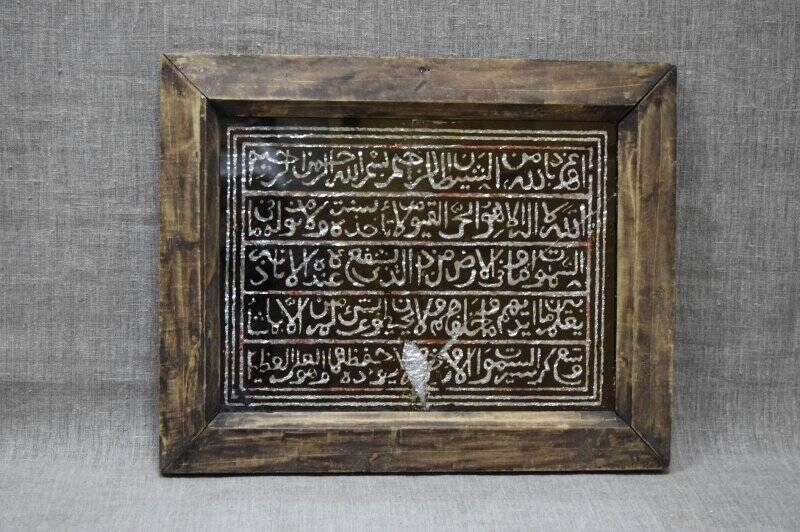 اعوذ بالله من الشيطان الرجيم بسم الله الرحمن الرحيم
الله لا اله الا هو الحي القيوم لا تأخذه سنة ولا نوم له ما
السموات وما في الارض من ذ الذي يشفع عنده الا باذنه
يعلم ما بين ايديهم وما خلفهم ولا يحيطون بشئ من علمه الا بما شاء
وسع كرسيه السموات والارض ولا يؤده حفظهما وهو العلي العظيم